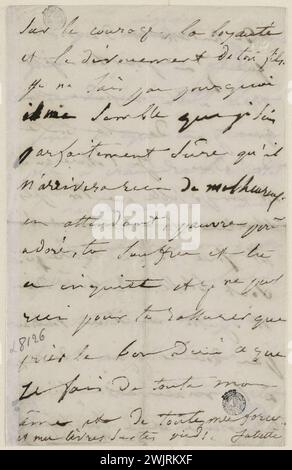 sur le courage, la loyauté
et le dévouement de ton fils.
Je ne sais pas pourquoi
il me semble que je suis
parfaitement sûre qu'il
n'arrivera rien de malheureux
en attendant, pauvre père
adoré, tu souffres et tu
es inquiet et je ne puis
rien pour te rassurer que
prier le bon Dieu ce que
je fais de toute mon
âme et de toutes mes forces
et mes lèvres à tes pieds. Juliette
28126
alamy
Image ID: 2WJRKXF
www.alamy.com